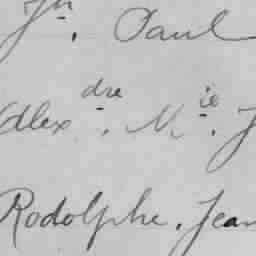 Jn. Paul
Alexdre. Mie. J
Rodolphe. Jean